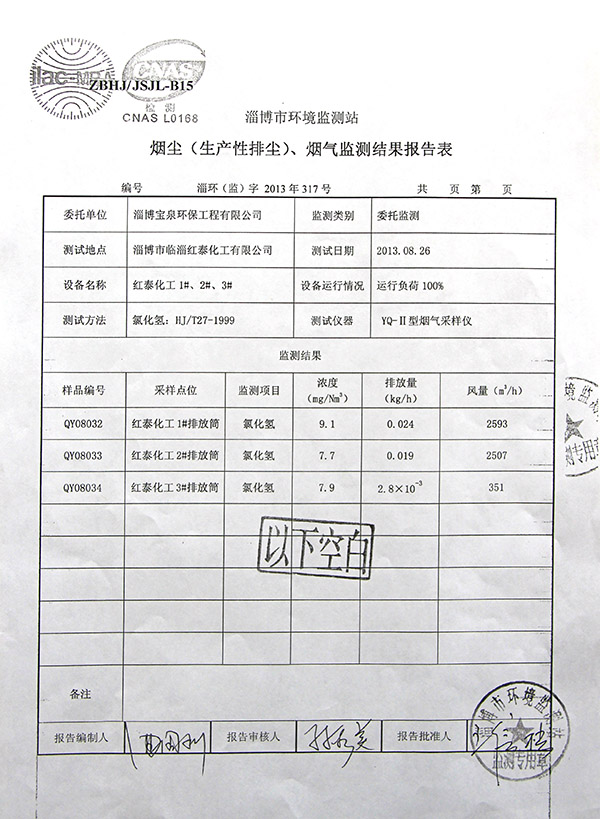 ilac-MRA CNAS
ZBHJ/JSJL-B15
检 测
CNAS L0168
淄博市环境监测站
烟尘（生产性排尘）、烟气监测结果报告表
编号 淄环（监）字 2013 年 317 号 共 页 第 页
委托单位 淄博宝泉环保工程有限公司 监测类别 委托监测
测试地点 淄博市临淄红泰化工有限公司 测试日期 2013.08.26
设备名称 红泰化工 1#、2#、3# 设备运行情况 运行负荷 100%
测试方法 氯化氢：HJ/T27-1999 测试仪器 YQ-Ⅱ型烟气采样仪
监测结果
样品编号 采样点位 监测项目 浓度（mg/Nm³） 排放量（kg/h） 风量（m³/h）
QY08032 红泰化工 1#排放筒 氯化氢 9.1 0.024 2593
QY08033 红泰化工 2#排放筒 氯化氢 7.7 0.019 2507
QY08034 红泰化工 3#排放筒 氯化氢 7.9 2.8×10⁻³ 351
以下空白
备注
报告编制人 报告审核人 报告批准人
博市环境监
监测专用章
境监
测专用章